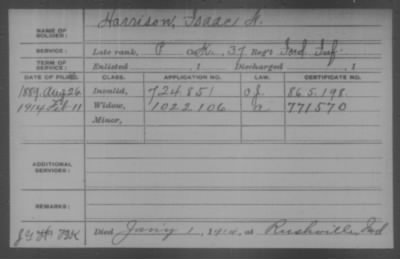 NAME OF SOLDIER: Harrison, Isaac H.
SERVICE: Late rank, P Co. K, 37 Reg't Ind Inf.
TERM OF SERVICE: Enlisted , 1 Discharged , 1
DATE OF FILING. CLASS. APPLICATION NO. LAW. CERTIFICATE NO.
1889, Aug 26 Invalid, 724.851 865.198
1914 Feb 11 Widow, 1022.106 771570
Minor,
ADDITIONAL SERVICES:
REMARKS:
Died Jan'y 1, 1914, at Rushville, Ind